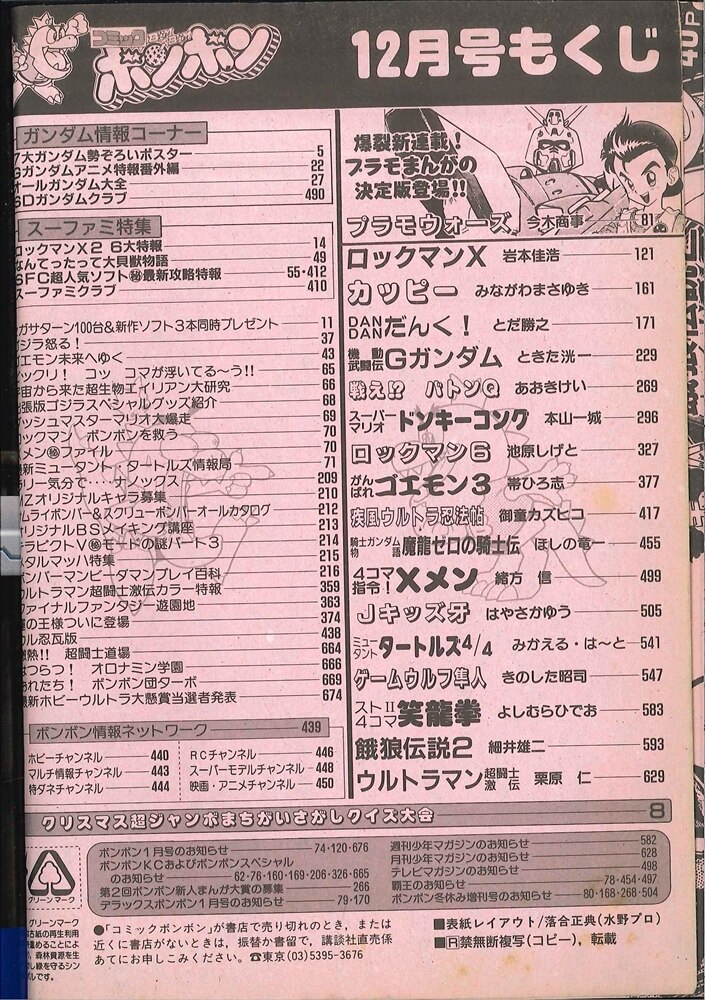 コミック
ボンボン
12月号もくじ
ガンダム情報コーナー
7大ガンダム勢ぞろいポスター 5
Gガンダムアニメ特報番外編 22
オールガンダム大全 27
SDガンダムクラブ 490
スーファミ特集
ロックマンX2 6大特報 14
なんてったって大貝獣物語 49
SFC超人気ソフト㊙最新攻略特報 55・412
スーファミクラブ 410
ガサターン100台&新作ソフト3本同時プレゼント 11
ジラ怒る! 37
イエモン未来へゆく 43
ックリ! コッ コマが浮いてる〜う!! 65
宙から来た超生物エイリアン大研究 66
張版ゴジラスペシャルグッズ紹介 68
ッシュマスターマリオ大爆走 69
ックマン ボンボンを救う 70
メン㊙ファイル 70
新ミュータント・タートルズ情報局 71
ラリー気分で‥‥ナノックス 209
Zオリジナルキャラ募集 210
ムライボンバー&スクリューボンバーオールカタログ 212
オリジナルBSメイキング講座 213
ラピクトV㊙モードの謎パート3 214
タルマッハ特集 215
ンバーマンビーダマンプレイ百科 216
ルトラマン超闘士激伝カラー特報 359
ァイナルファンタジー遊園地 363
の王様ついに登場 374
ル忍瓦版 438
熱!! 超闘士道場 664
はつらつ! オロナミン学園 666
れたち! ボンボン団ターボ 669
新ホビーウルトラ大懸賞当選者発表 674
ボンボン情報ネットワーク 439
ホビーチャンネル 440
マルチ情報チャンネル 443
特ダネチャンネル 444
RCチャンネル 446
スーパーモデルチャンネル 448
映画・アニメチャンネル 450
爆裂新連載!
プラモまんがの
決定版登場!!
プラモウォーズ 今木商事 81
ロックマンX 岩本佳浩 121
カッピー みながわまさゆき 161
DANDANだんく! とだ勝之 171
機動武闘伝Gガンダム ときた洸一 229
戦え!? パトンQ あおきけい 269
スーパーマリオ ドンキーコング 本山一城 296
ロックマン6 池原しげと 327
がんばれゴエモン3 帯ひろ志 377
疾風ウルトラ忍法帖 御童カズヒコ 417
騎士ガンダム物語 魔龍ゼロの騎士伝 ほしの竜一 455
4コマ指令!Xメン 緒方 信 499
Jキッズ牙 はやさかゆう 505
ミュータントタートルズ4/4 みかえる・は〜と 541
ゲームウルフ隼人 きのした昭司 547
ストII4コマ 笑龍拳 よしむらひでお 583
餓狼伝説2 細井雄二 593
ウルトラマン超闘士激伝 栗原 仁 629
クリスマス超ジャンボまちがいさがしクイズ大会 8
ボンボン1月号のお知らせ 74・120・676
ボンボンKCおよびボンボンスペシャル
のお知らせ 62・76・160・169・206・326・665
第2回ボンボン新人まんが大賞の募集 266
デラックスボンボン1月号のお知らせ 79・170
週刊少年マガジンのお知らせ 582
月刊少年マガジンのお知らせ 628
テレビマガジンのお知らせ 498
覇王のお知らせ 78・454・497
ボンボン冬休み増刊号のお知らせ 80・168・268・504
グリーンマーク
グリーンマーク
古紙の再生利用
進めることによ
、森林資源を生
し緑を守るシン
ルです。
●「コミックボンボン」が書店で売り切れのとき、または
近くに書店がないときは、振替か書留で、講談社直売係
あてにお申しこみください。☎東京(03)5395-3676
■表紙レイアウト/落合正典(水野プロ)
■R禁無断複写(コピー)、転載